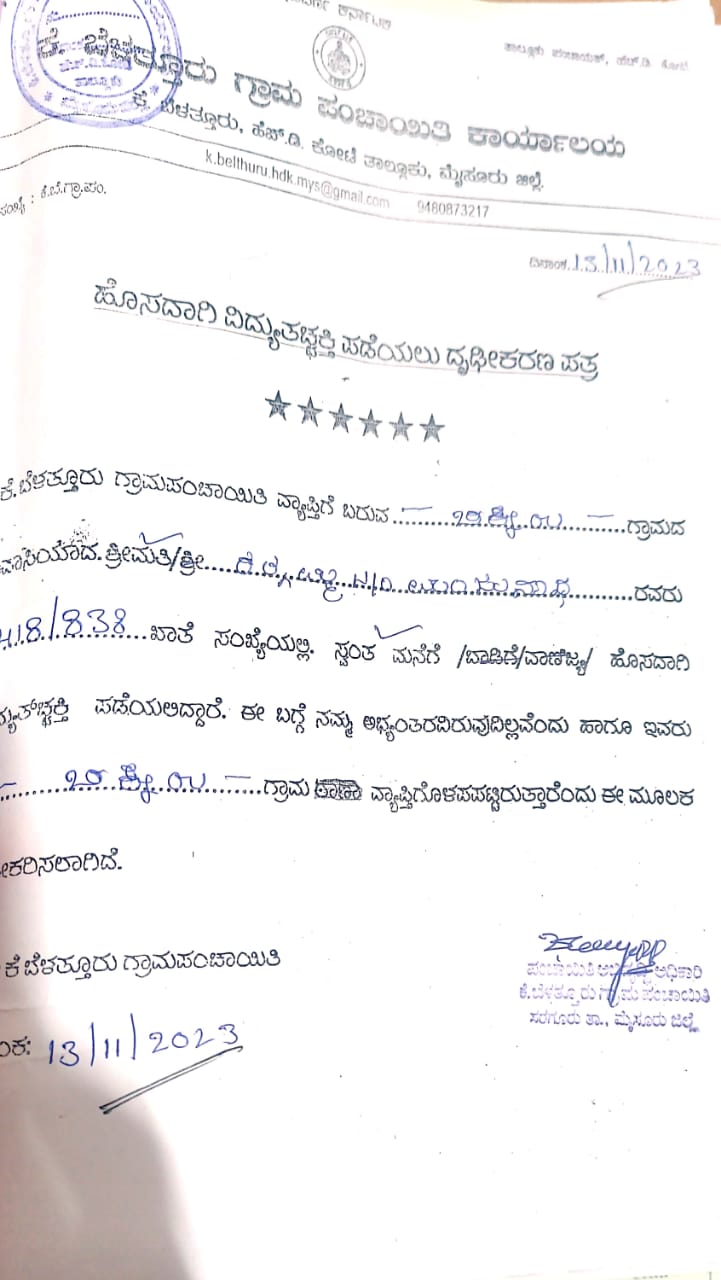 ತಾಲ್ಲೂಕು ಪಂಚಾಯತ್, ಹೆಚ್.ಡಿ. ಕೋಟೆ
ಕೆ. ಬೆಳತ್ತೂರು ಗ್ರಾಮ ಪಂಚಾಯಿತಿ ಕಾರ್ಯಾಲಯ
ಕೆ. ಬೆಳತ್ತೂರು, ಹೆಚ್.ಡಿ. ಕೋಟೆ ತಾಲ್ಲೂಕು, ಮೈಸೂರು ಜಿಲ್ಲೆ.
k.belthuru.hdk.mys@gmail.com 9480873217
ಸಂಖ್ಯೆ : ಕೆ.ಬೆ.ಗ್ರಾ.ಪಂ.
ದಿನಾಂಕ. 13/11/2023
ಹೊಸದಾಗಿ ವಿದ್ಯುತಚ್ಛಕ್ತಿ ಪಡೆಯಲು ದೃಢೀಕರಣ ಪತ್ರ
★★★★★★
ಕೆ.ಬೆಳತ್ತೂರು ಗ್ರಾಮಪಂಚಾಯಿತಿ ವ್ಯಾಪ್ತಿಗೆ ಬರುವ ಗ್ರಾಮದ
ವಾಸಿಯಾದ. ಶ್ರೀಮತಿ/ಶ್ರೀ ರವರು
418/838 ಖಾತೆ ಸಂಖ್ಯೆಯಲ್ಲಿ. ಸ್ವಂತ ಮನೆಗೆ /ಬಾಡಿಗೆ/ವಾಣಿಜ್ಯ/ ಹೊಸದಾಗಿ
ಪಡೆಯಲಿದ್ದಾರೆ. ಈ ಬಗ್ಗೆ ನಮ್ಮ ಅಭ್ಯಂತರವಿರುವುದಿಲ್ಲವೆಂದು ಹಾಗೂ ಇವರು
ಗ್ರಾಮ ಠಾಣಾ ವ್ಯಾಪ್ತಿಗೊಳಪಪಟ್ಟಿರುತ್ತಾರೆಂದು ಈ ಮೂಲಕ
ೀಕರಿಸಲಾಗಿದೆ.
ಕೆ ಬೆಳತ್ತೂರು ಗ್ರಾಮಪಂಚಾಯಿತಿ
ಪಂಚಾಯಿತಿ ಅಭಿವೃದ್ಧಿ ಅಧಿಕಾರಿ
ಕೆ.ಬೆಳತ್ತೂರು ಗ್ರಾಮ ಪಂಚಾಯಿತಿ
ಸರಗೂರು ತಾ., ಮೈಸೂರು ಜಿಲ್ಲೆ
ಂಕ: 13/11/2023